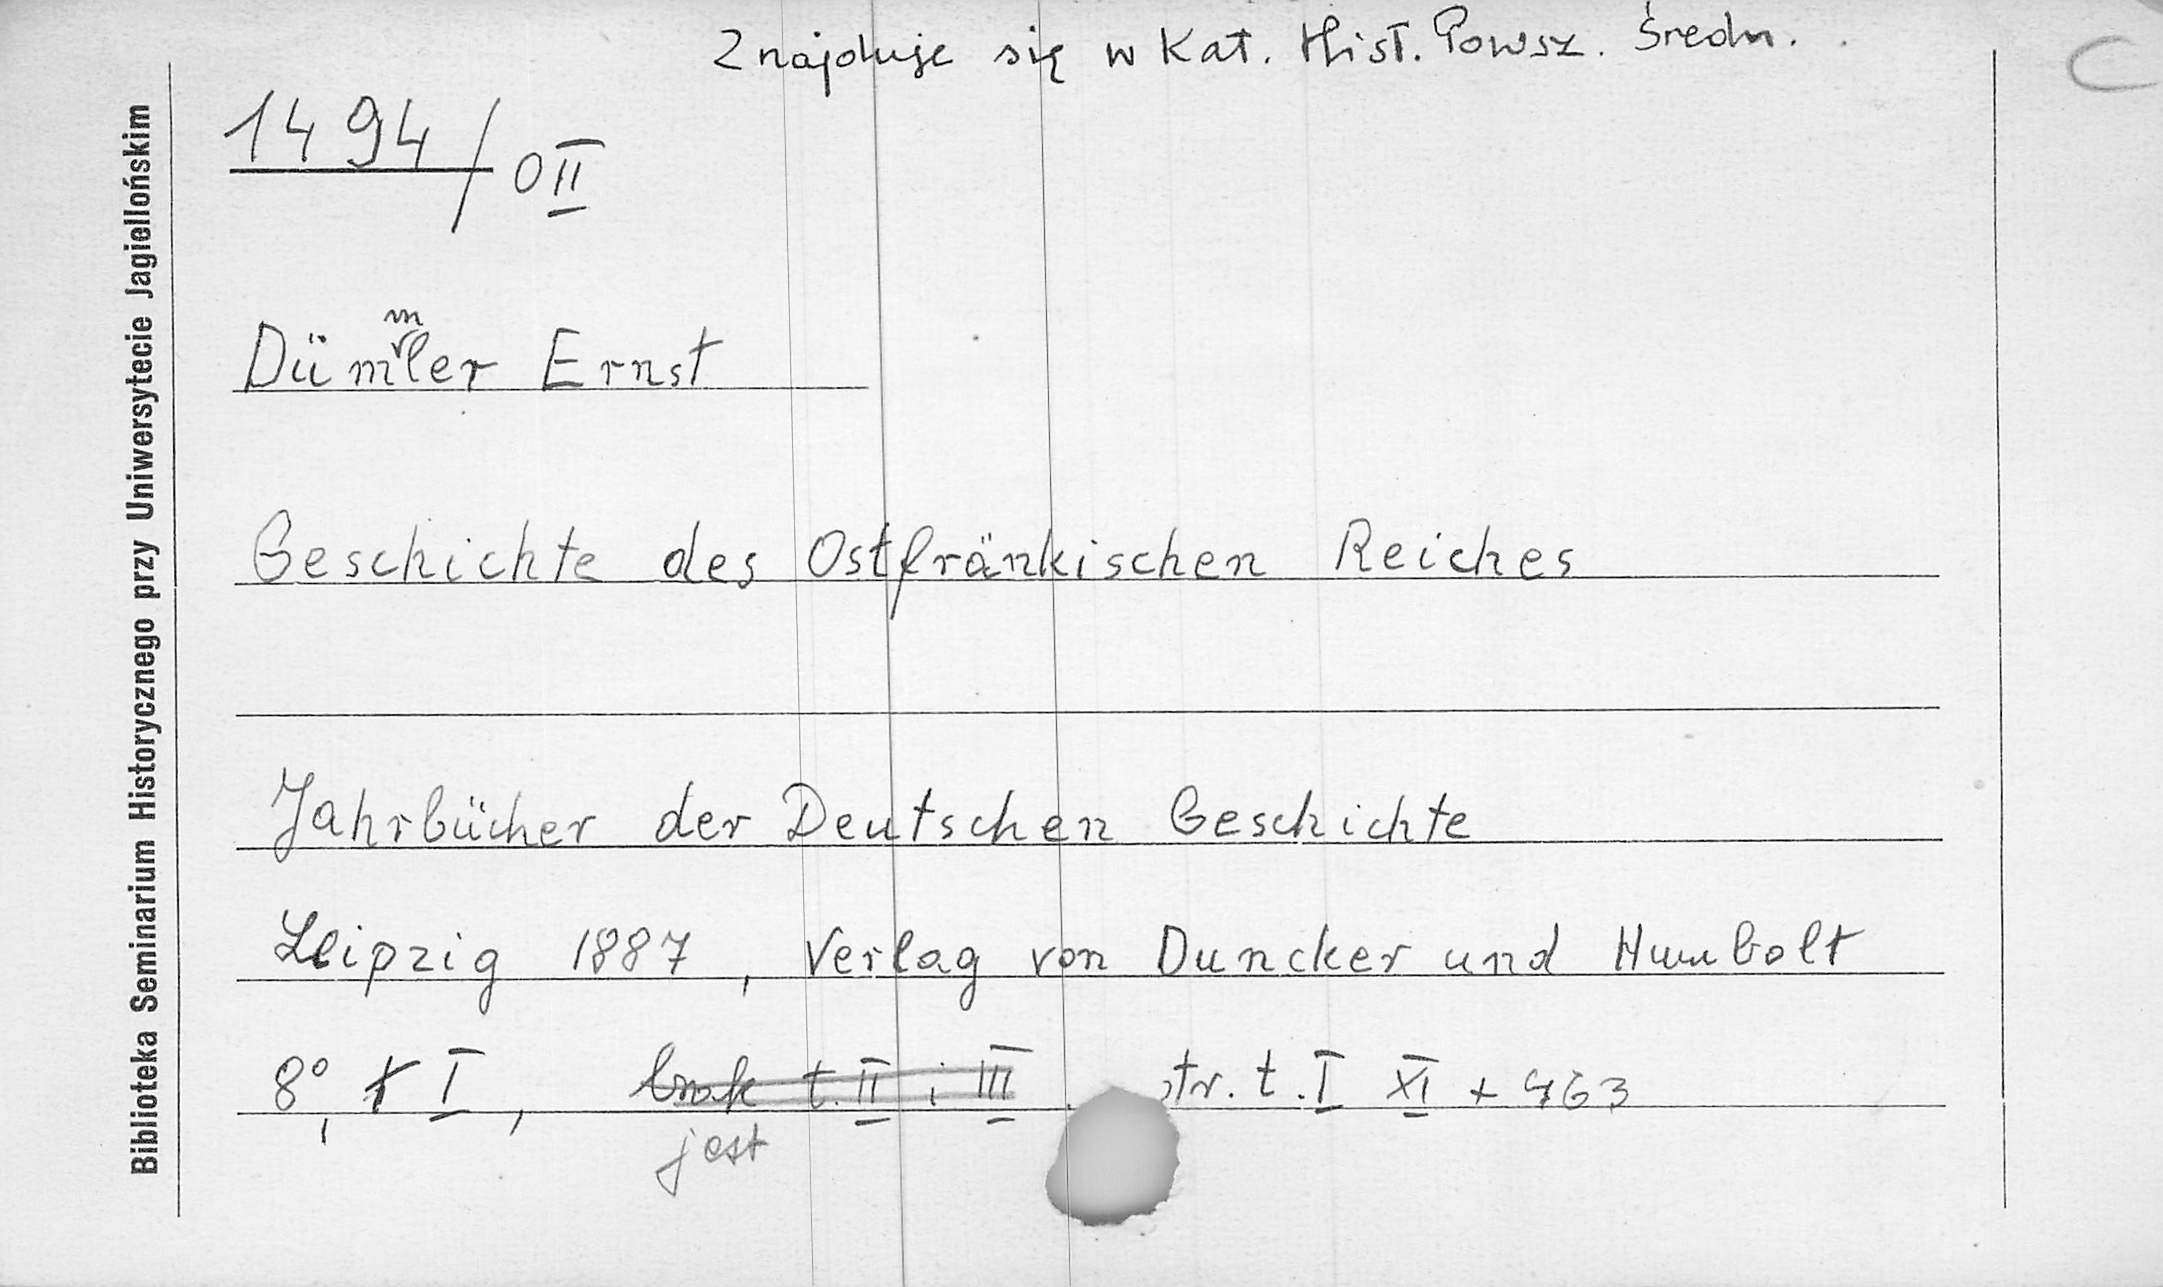 Znajduje się w Kat. Hist. Powsz. Średn.
C
1494/0II
Dümmler Ernst
Geschichte des Ostfränkischen Reiches
Jahrbücher der Deutschen Geschichte
Leipzig 1887, Verlag von Duncker und Humbolt
8°, t I, brak t. II i III str. t. I XI + 463
jest
Biblioteka Seminarium Historycznego przy Uniwersytecie Jagiellońskim